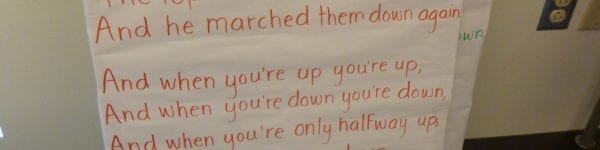 And he marched them down again
own
And when you're up you're up,
And when you're down you're down,
And when you're only halfway up,